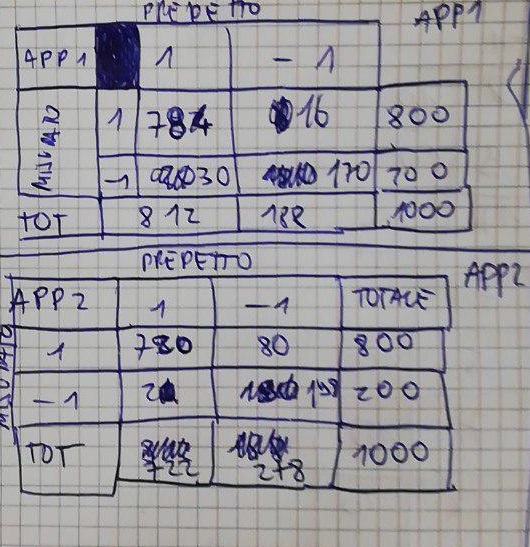 PREDETTO APP1
APP1 1 -1
MISURATO 1 784 16 800
-1 30 170 200
TOT 812 188 1000
PREDETTO APP2
APP2 1 -1 TOTALE
MISURATO 1 80 800
-1 2 198 200
TOT 722 278 1000